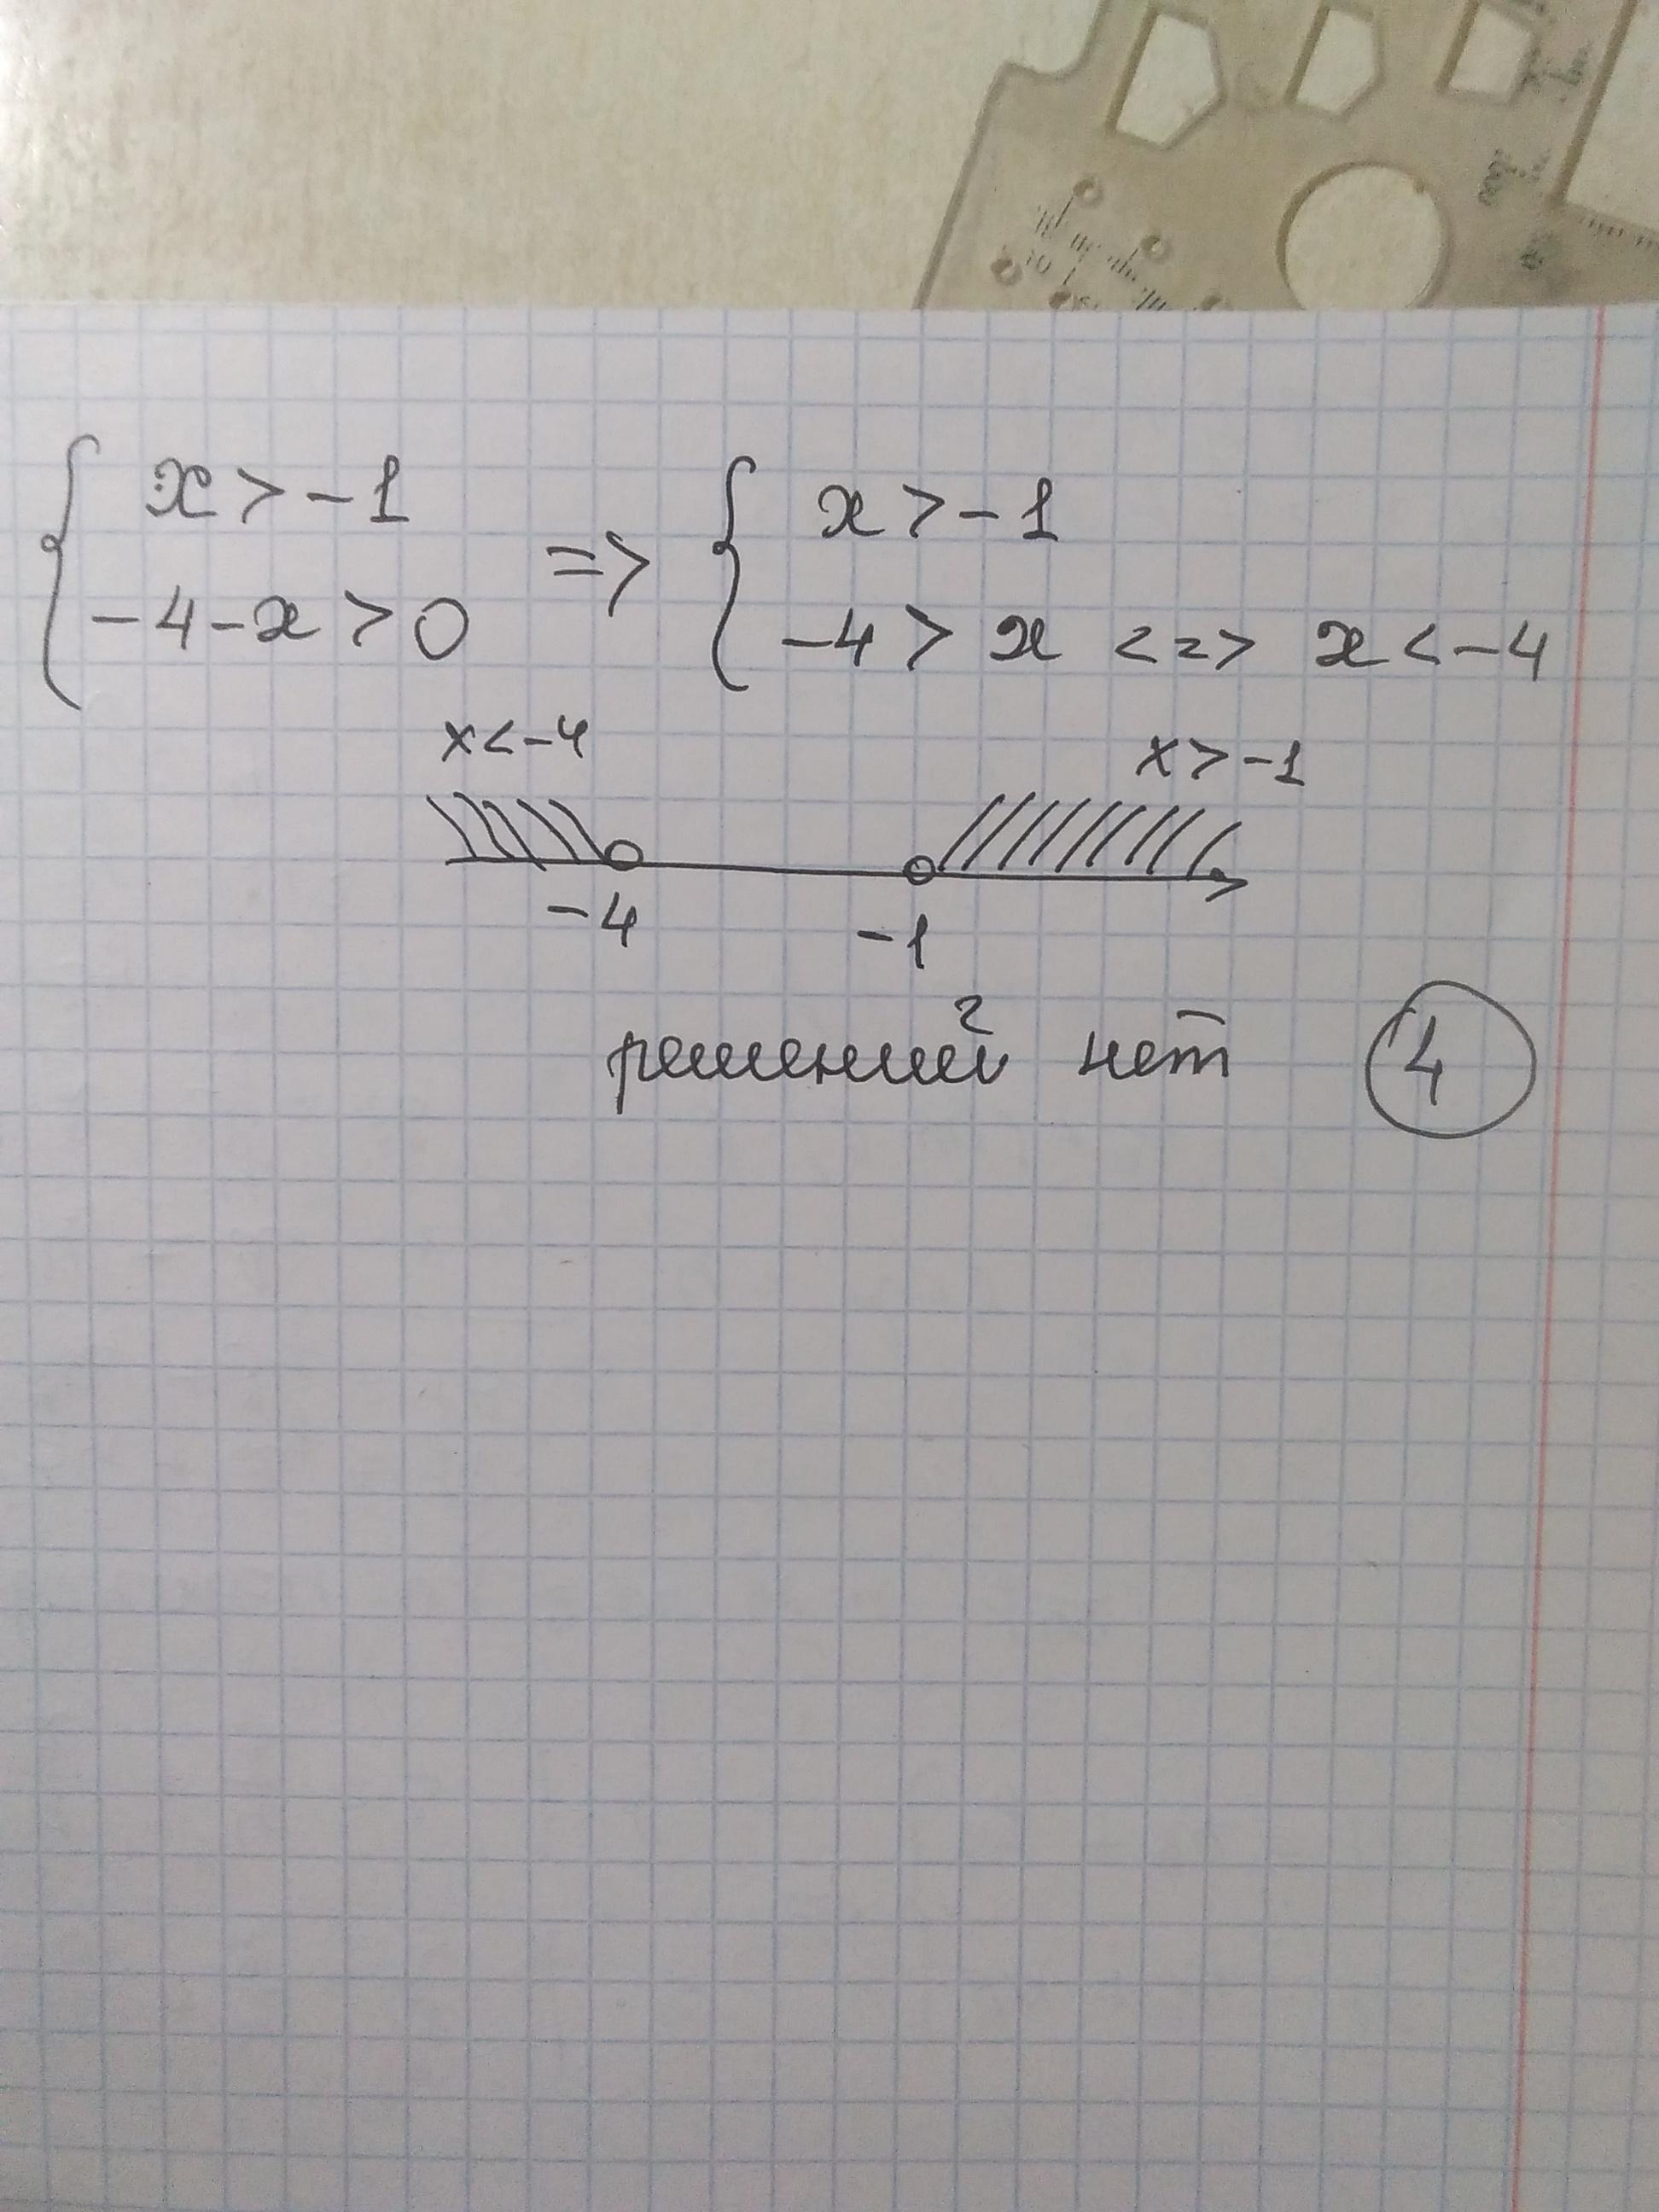 { x > -1 => { x > -1
-4 - x > 0 -4 > x <=> x < -4
x < -4 x > -1
-4 -1
решений нет 4